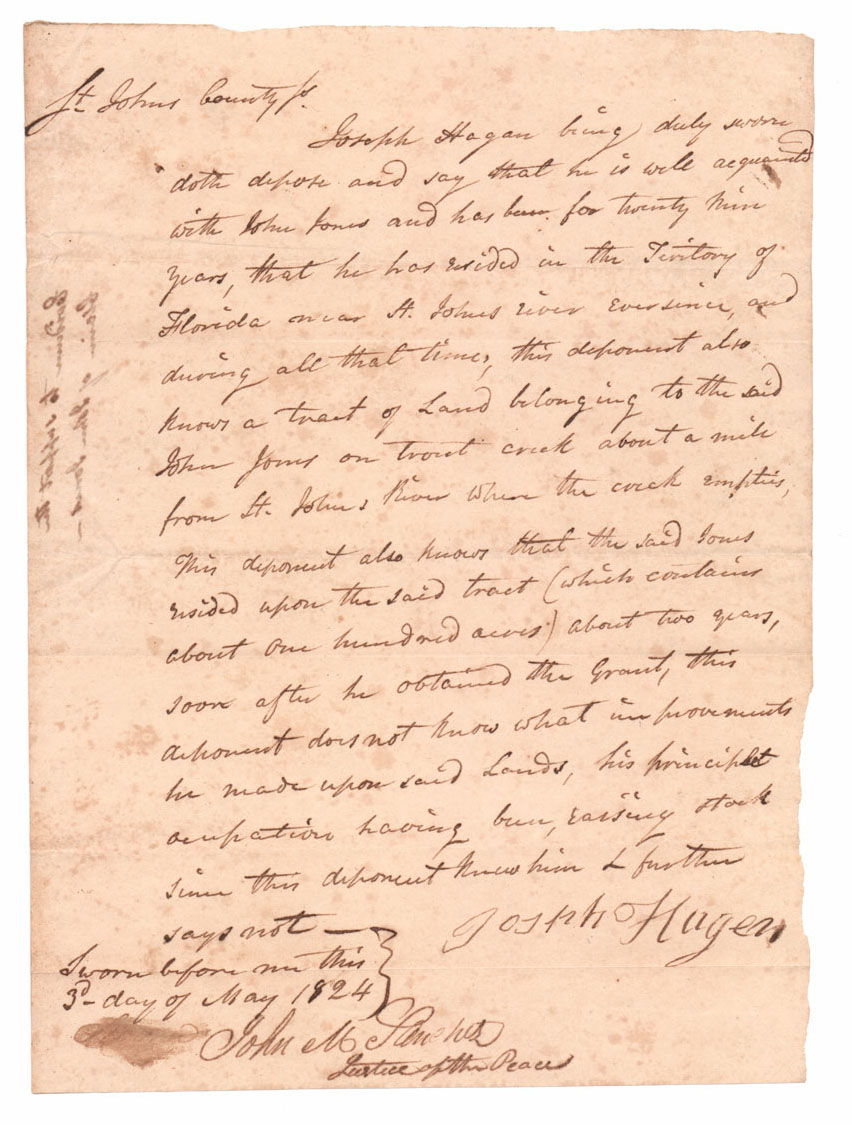 St. Johns County ss.
Joseph Hagan being duly sworn
doth depose and say that he is well acquainted
with John Jones and has been for twenty nine
years, that he has resided in the Territory of
Florida near St. Johns river ever since, and
during all that time, this deponent also
knows a tract of Land belonging to the said
John Jones on trout creek about a mile
from St. Johns River where the creek empties,
This deponent also knows that the said Jones
resided upon the said tract (which contains
about one hundred acres) about two years,
soon after he obtained the Grant, this
deponent does not know what improvements
he made upon said Lands, his principal
ocupation having been, raising stock
since this deponent knew him & further
says not —
Joseph Hagen
Sworn before me this
3d day of May 1824
John M Sanchez
Justice of the Peace